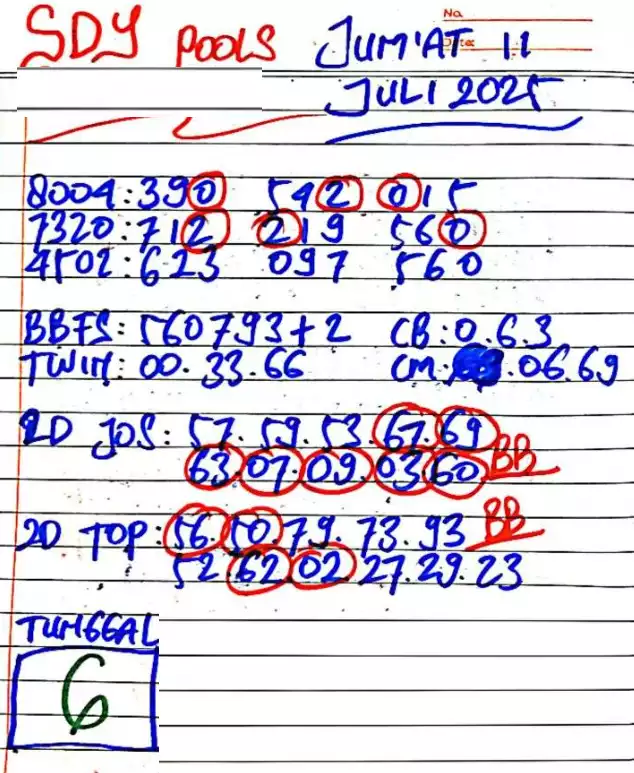 No.
SDY POOLS JUM'AT 11
Date:
JULI 2025
8004:390 542 015
7320:712 219 560
4502:623 097 560
BBFS: 560793+2 CB:0.6.3
TWIN: 00.33.66 CM: .06.69
2D JOS: 57.59.53.67.69
63.07.09.03.60 BB
2D TOP: 56.50.79.73.93 BB
52.62.02.27.29.23
TUNGGAL
6